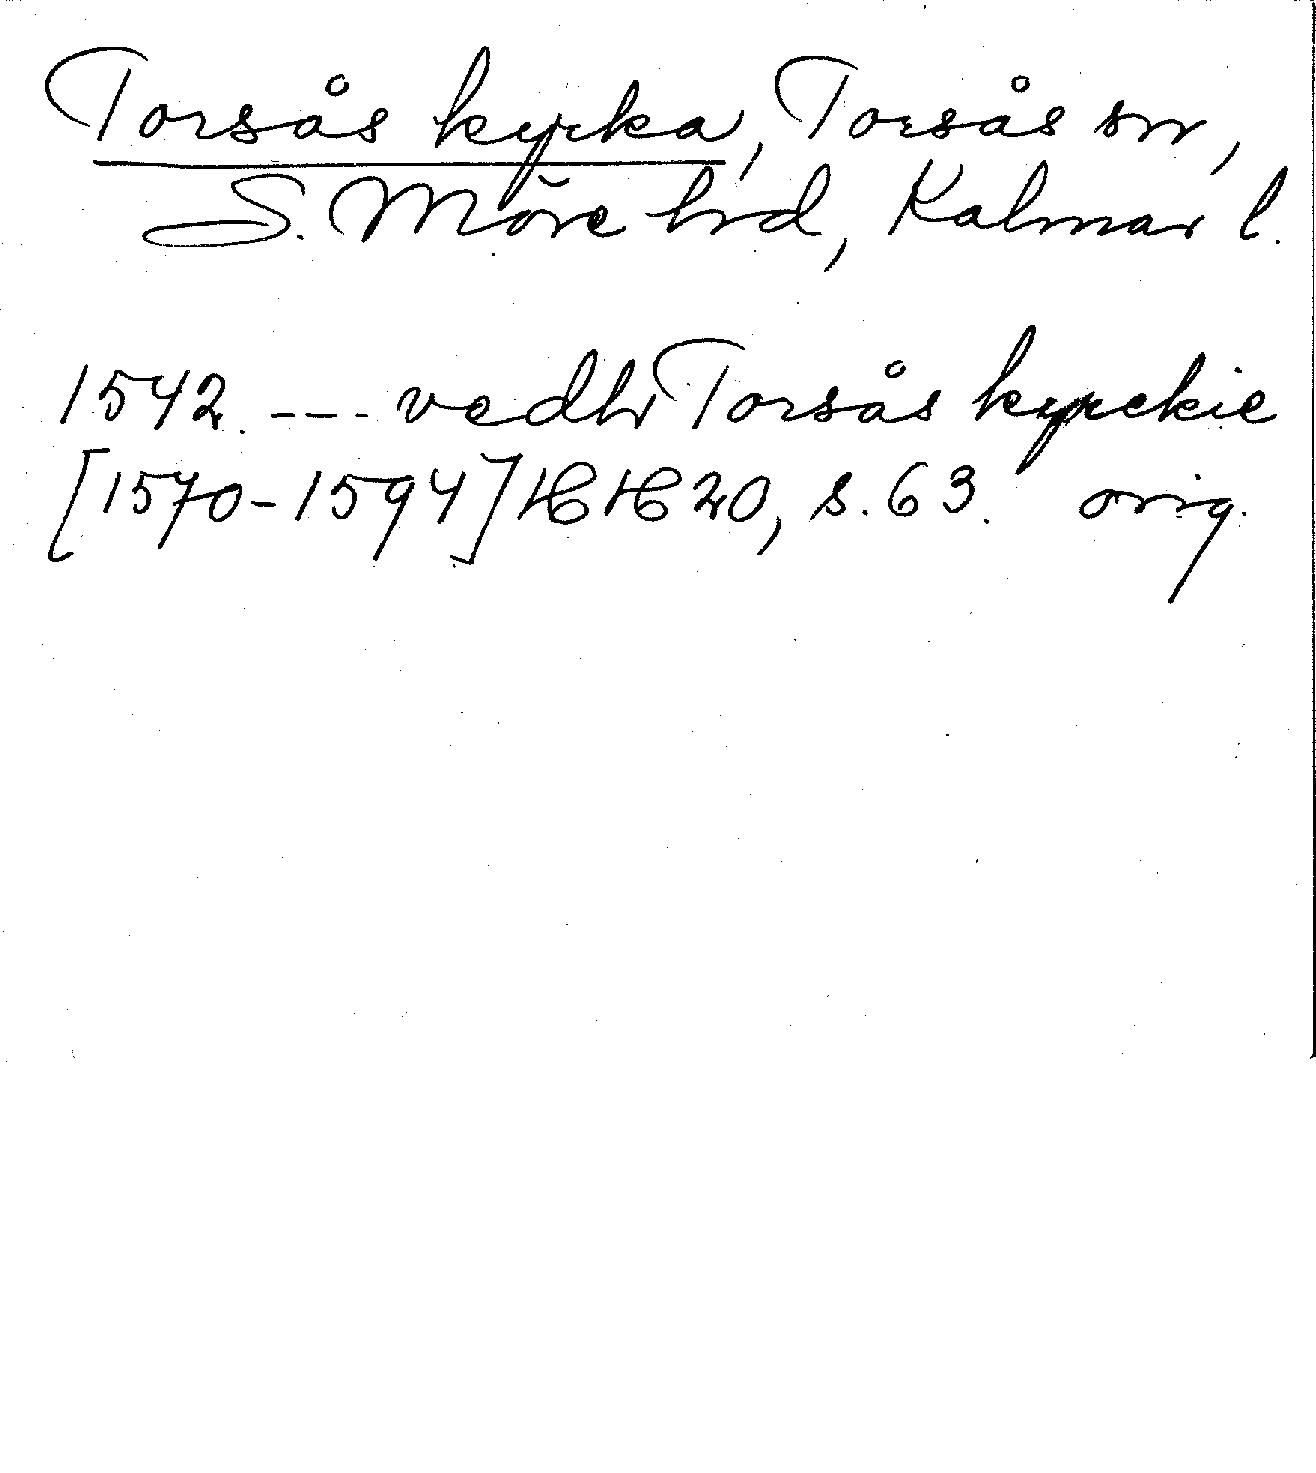 Torsås kyrka, Torsås sn,
S. Möre hrd, Kalmar l.
1542. --- vedh Torsås kyrckie
[1570-1594] HH 20, s. 63. orig.